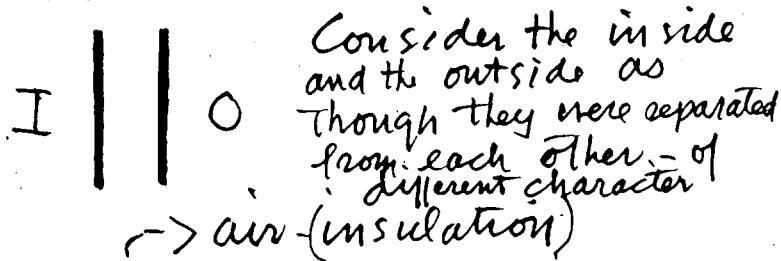 Consider the inside
and the outside as
I O though they were separated
from each other. - of
different character
-> air - (insulation)